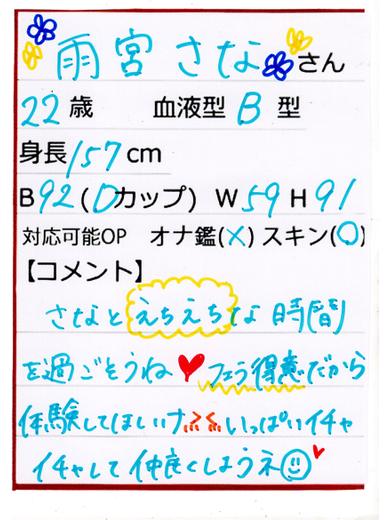 雨宮さなさん
22歳 血液型 B 型
身長157cm
B92(Dカップ) W59 H91
対応可能OP オナ鑑(×) スキン(○)
【コメント】
さなとえちえちな時間
を過ごそうね♥フェラ得意だから
体験してほしいけ いっぱいイチャ
イチャして仲良くしようネ☺♥